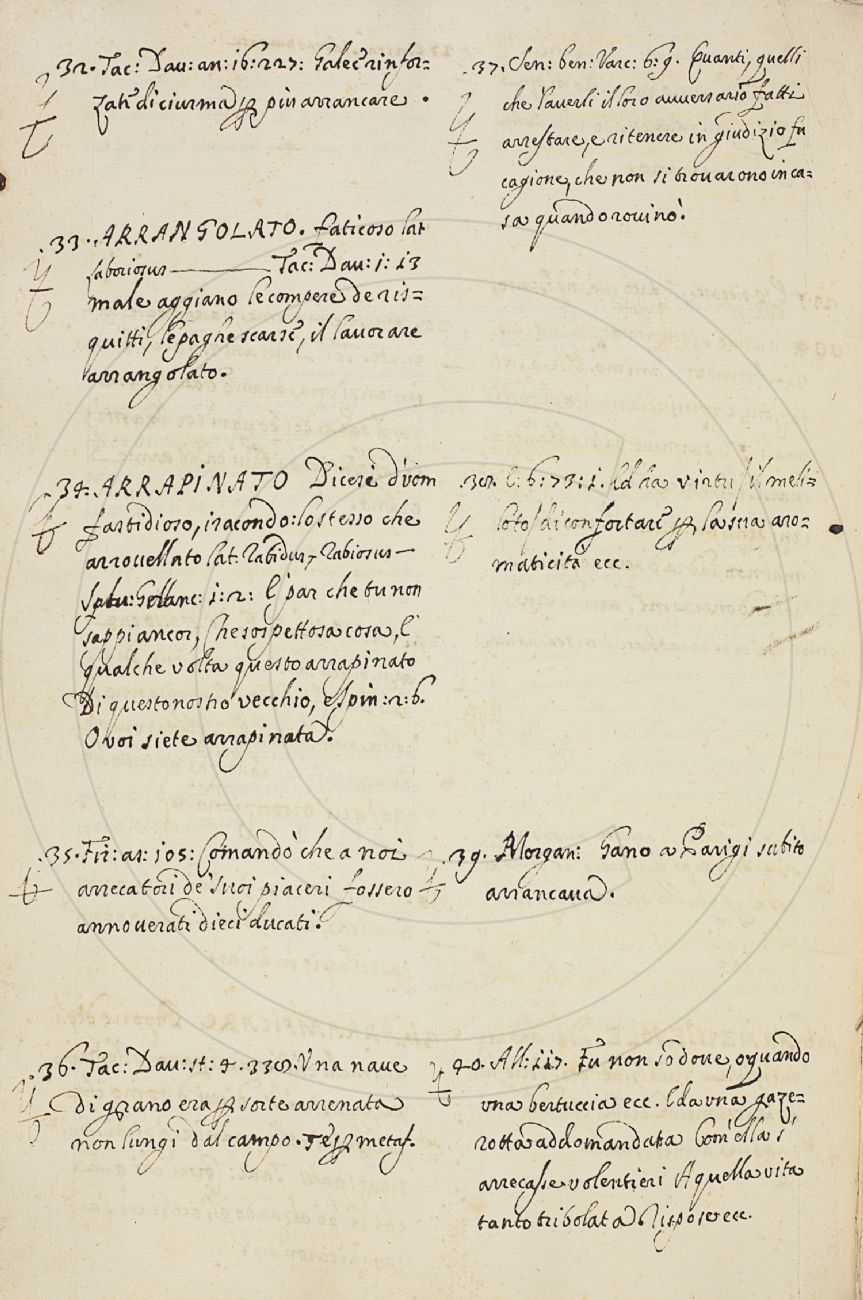 32. Tac: Dau: an: 16: 227: Galee rinfor=
zate di ciurma per più arrancare.
33. ARRANGOLATO. faticoso lat
laboriosus ——— Tac: Dau: 1: 13
male aggiano le compere de ris=
quitti, le paghe scarse, il lauorare
arrangolato.
34. ARRAPINATO Dicesi d'uom
fastidioso, iracondo: lo stesso che
arrouellato lat. Rabidus, Rabiosus —
Salu: Granc: 1: 2: E' par che tu non
sappi ancor, Che sospettosa cosa, E
qualche volta questo arrapinato
Di questo nostro vecchio, e Spin: 2: 6.
O voi siete arrapinata.
35. Fir: as: 105: Comandò che a noi
arrecatori de' suoi piaceri fossero
annouerati dieci ducati.
36. Tac: Dau: st: 4. 338. Vna naue
di grano era per sorte arrenata
non lungi dal campo. per metaf.
37. Sen: ben: Varc: 6: 9. Quanti, quelli
che l'auerli il loro auuersario fatti
arrestare, e ritenere in giudizio fu
cagione, che non si trouarono in ca=
sa quando rouinò.
38. C: 6: 73: 1. Ed ha virtù / il meli=
loto / di confortare per la sua aro=
maticità ecc.
39. Morgan: Gano a Parigi subito
arrancaua.
40. All: 117. Fu non so doue, o quando
vna bertuccia ecc. E da vna gaze=
rotta addomandata Com' ella s'
arrecasse volentieri A quella vita
tanto tribolata Rispose ecc.